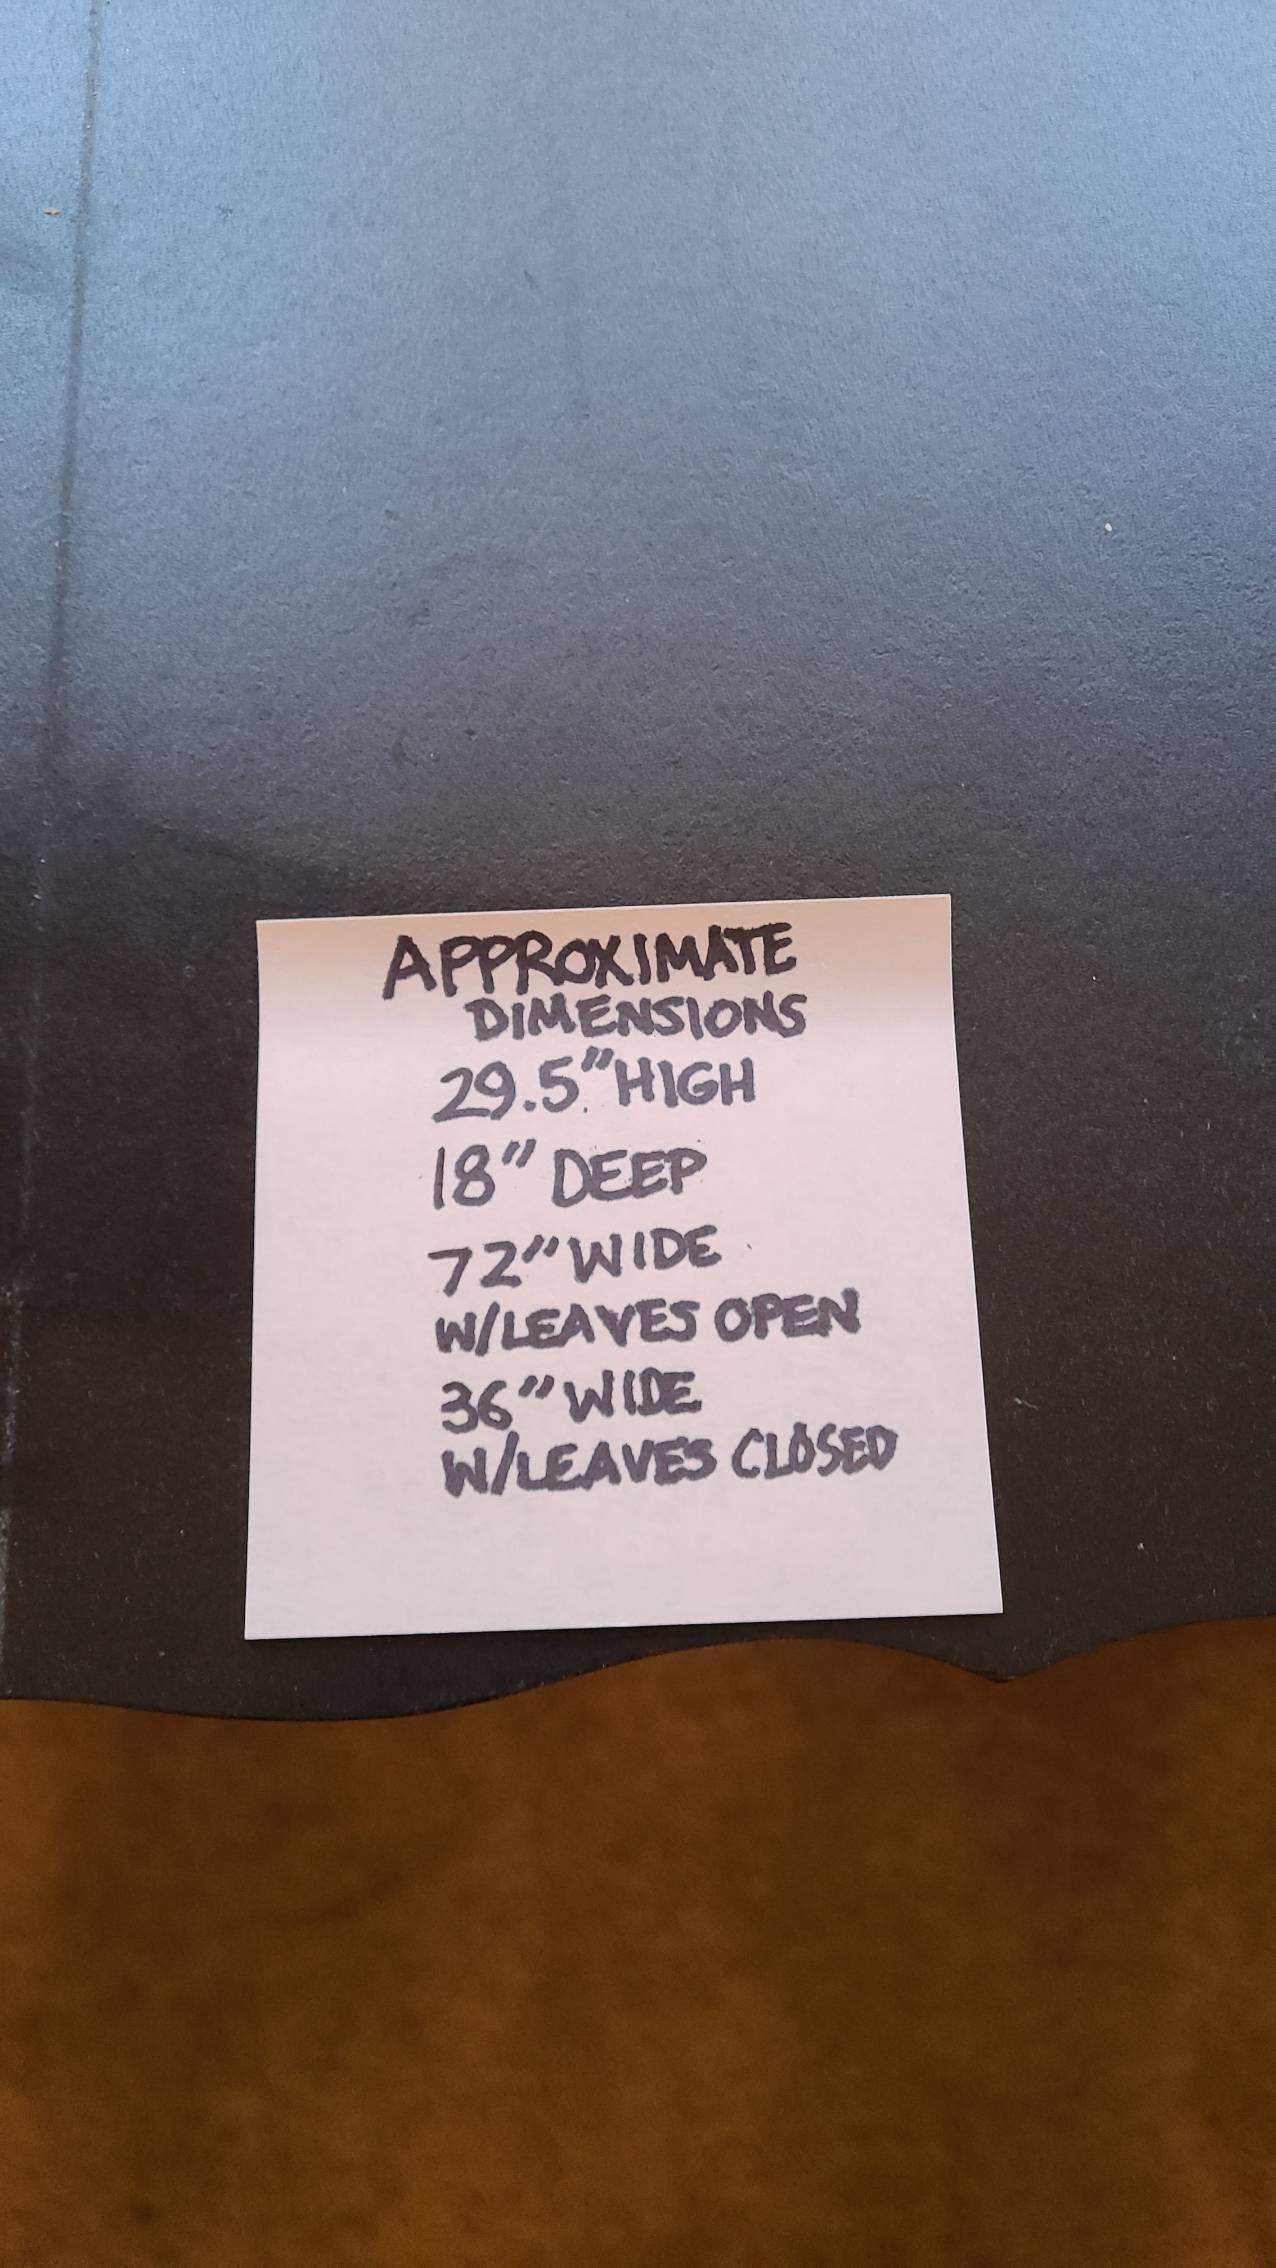 APPROXIMATE
DIMENSIONS
29.5" HIGH
18" DEEP
72" WIDE
W/LEAVES OPEN
36" WIDE
W/LEAVES CLOSED